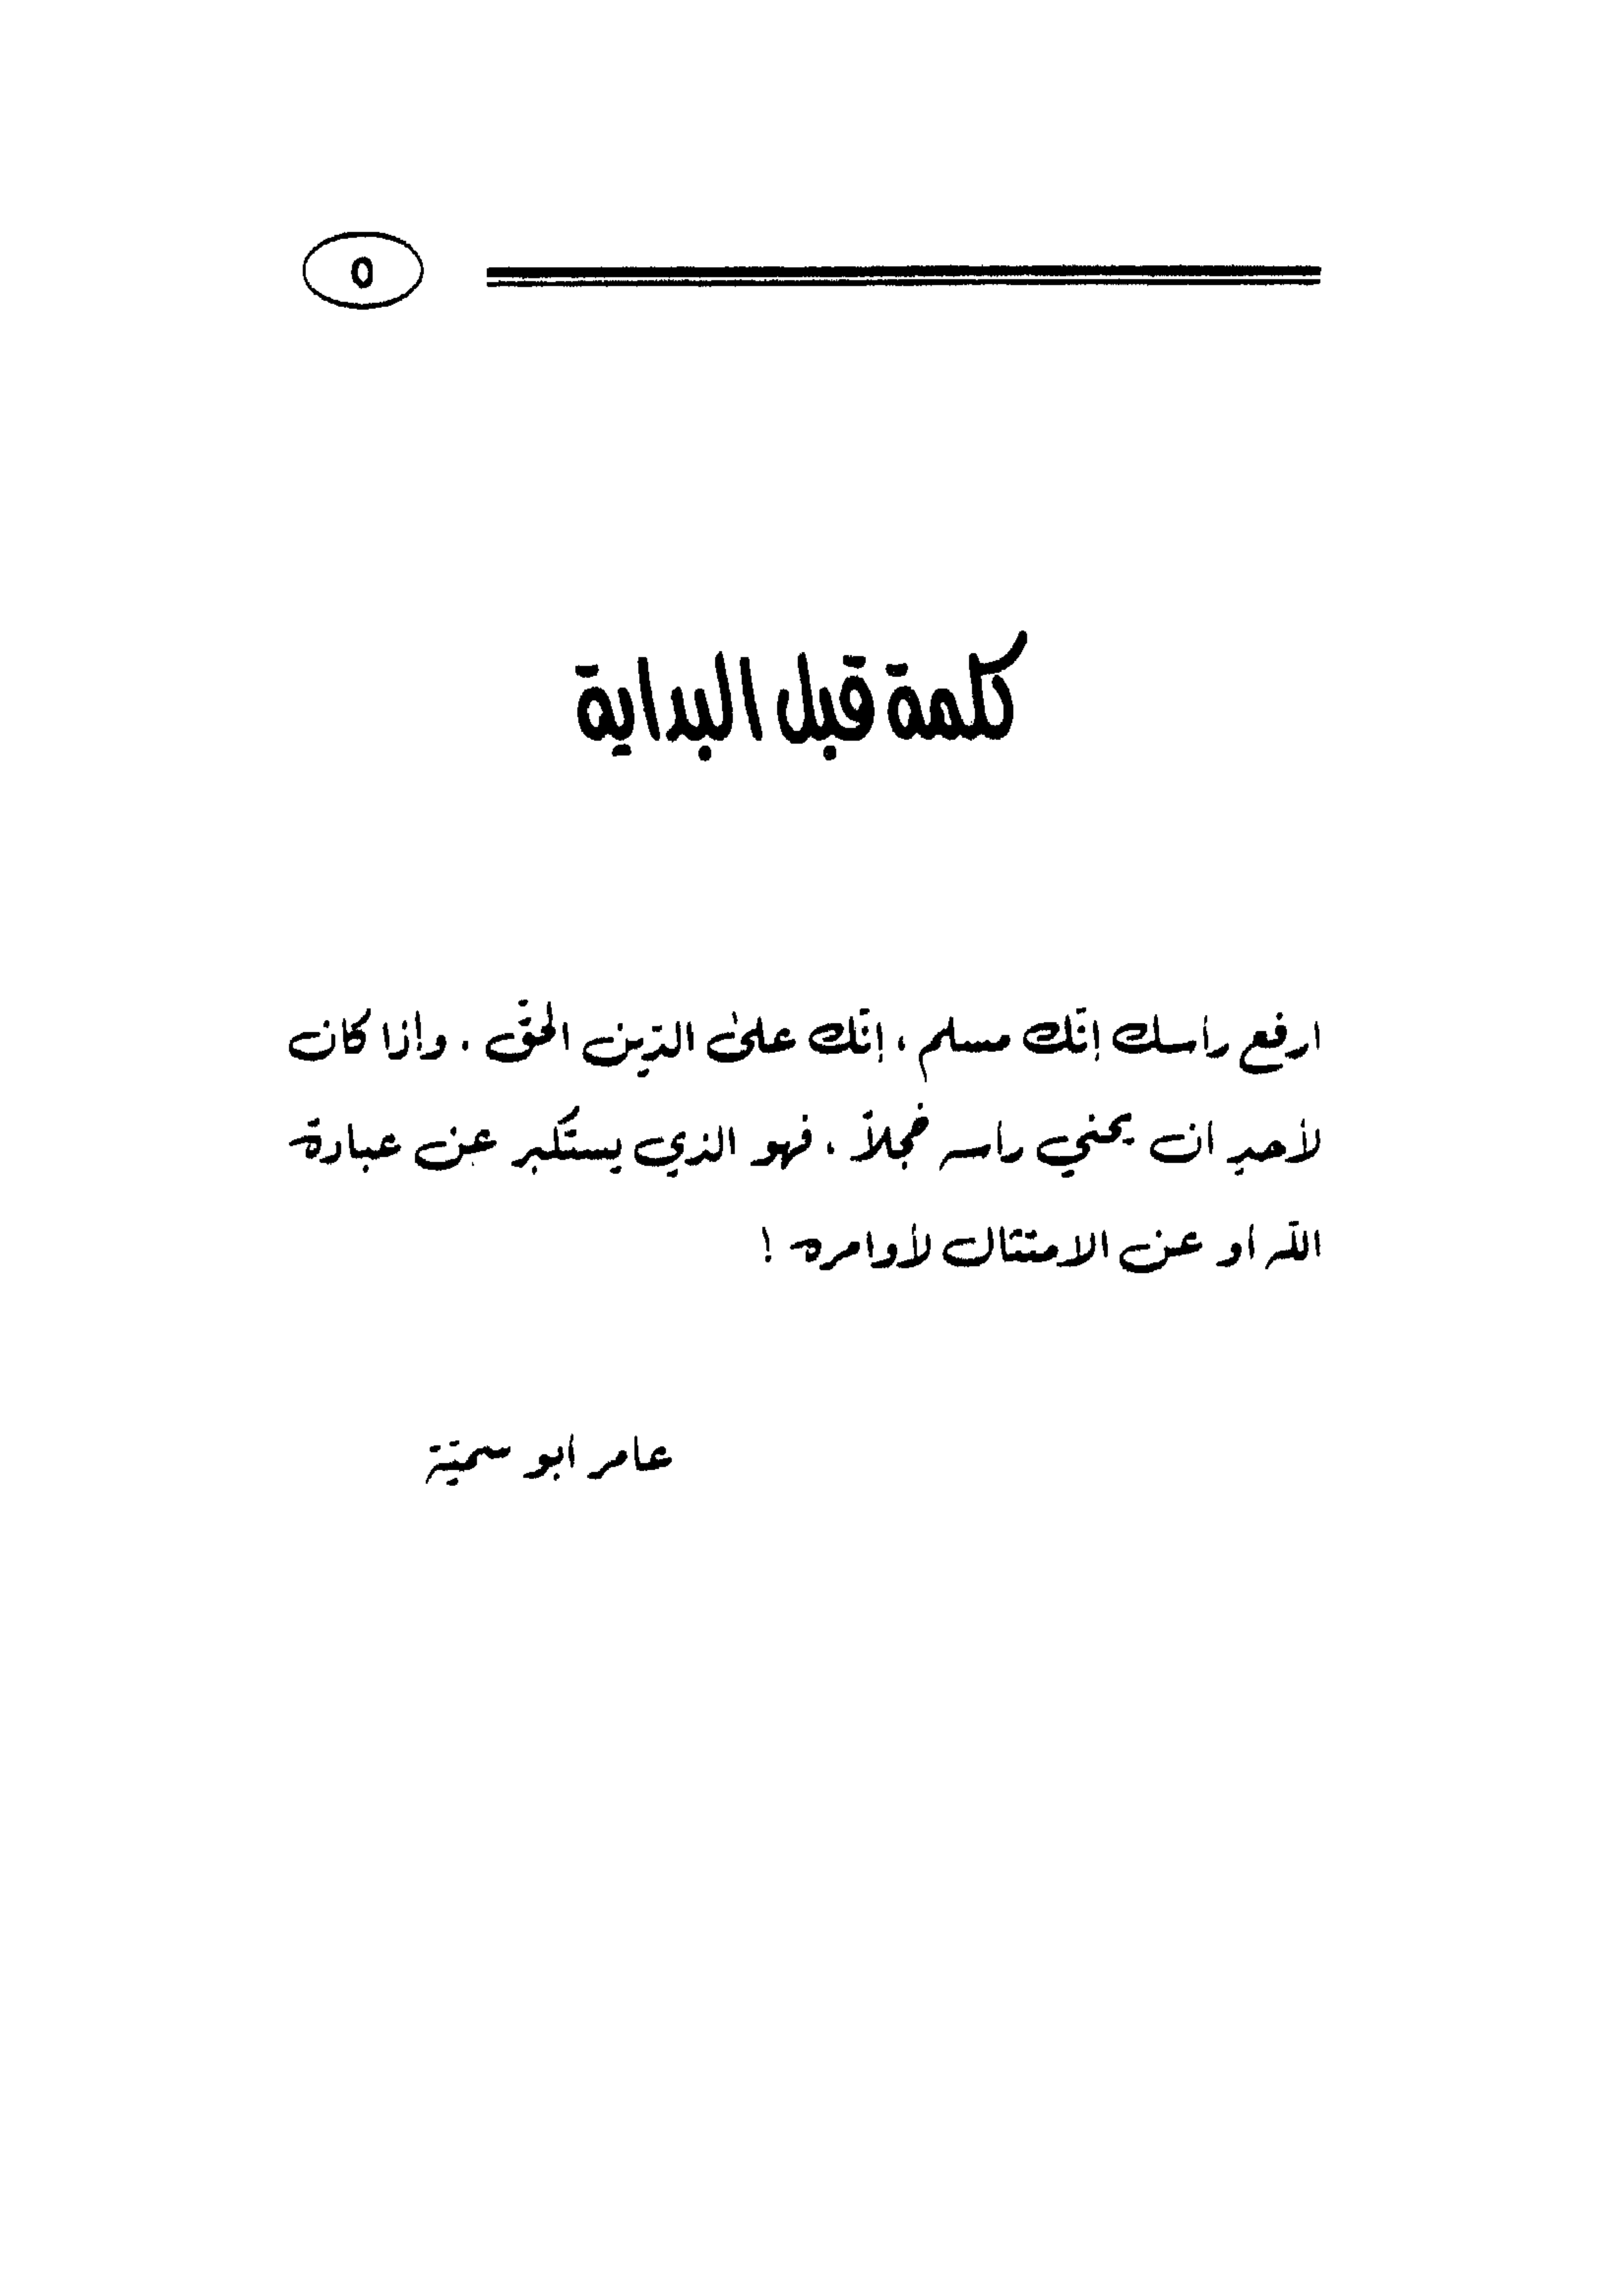 ٥
كلمة قبل البداية
ارفع رأسك إنّك مسلم ، إنّك علىٰ الدّين الحقّ . وإذا كان
لأحدٍ أن يحني رأسه خجلاً ، فهو الذي يستكبر عن عبادة
الله أو عن الامتثال لأوامره !
عامر أبو سميّة